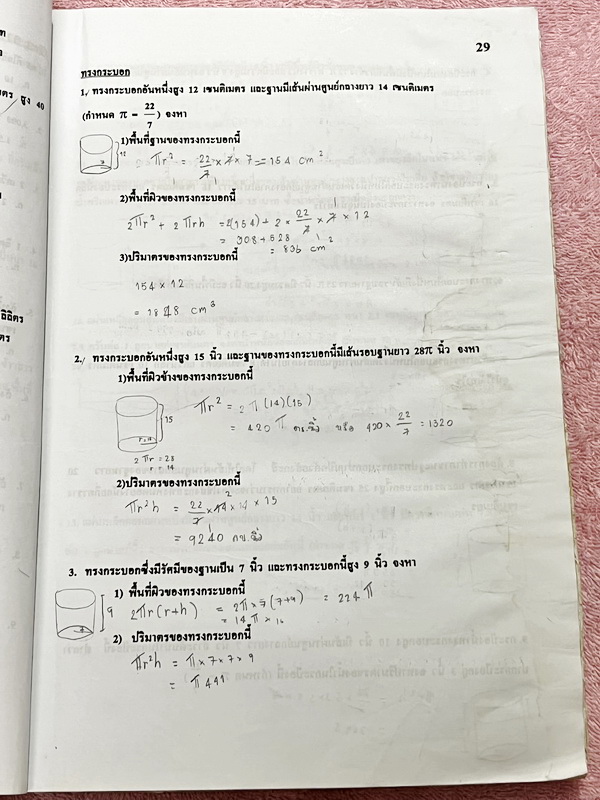 29
ทรงกระบอก
1. ทรงกระบอกอันหนึ่งสูง 12 เซนติเมตร และฐานมีเส้นผ่านศูนย์กลางยาว 14 เซนติเมตร
(กำหนด π = 22/7) จงหา
1)พื้นที่ฐานของทรงกระบอกนี้
πr² = 22/7 × 7 × 7 = 154 cm²
2)พื้นที่ผิวของทรงกระบอกนี้
2πr² + 2πrh = 2(154) + 2 × 22/7 × 7 × 12
= 308 + 528
= 836 cm²
3)ปริมาตรของทรงกระบอกนี้
154 × 12
= 1848 cm³
2. ทรงกระบอกอันหนึ่งสูง 15 นิ้ว และฐานของทรงกระบอกนี้มีเส้นรอบฐานยาว 28π นิ้ว จงหา
1)พื้นที่ผิวข้างของทรงกระบอกนี้
πr² = 2π(14)(15)
15
= 420 π ตร.นิ้ว หรือ 420 × 22/7 = 1320
r=14
2πr = 28
r = 14
2)ปริมาตรของทรงกระบอกนี้
πr²h = 22/7 × 14 × 14 × 15
= 9240 ลบ.นิ้ว
3. ทรงกระบอกซึ่งมีรัศมีของฐานเป็น 7 นิ้ว และทรงกระบอกนี้สูง 9 นิ้ว จงหา
1) พื้นที่ผิวของทรงกระบอกนี้
9 2πr(r+h) = 2π × 7 (7+9) = 224 π
= 14 π × 16
2) ปริมาตรของทรงกระบอกนี้
πr²h = π × 7 × 7 × 9
= π 441